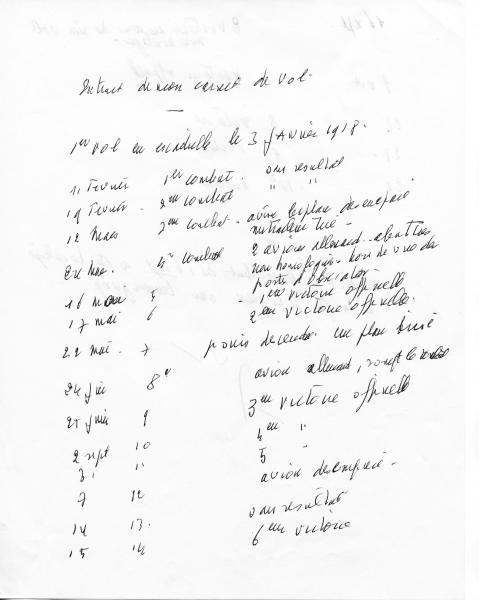 Extrait de mon carnet de vol.
1er vol en escadrille le 3 janvier 1918.
11 Février 1er combat. sans resultat
19 Février. 2em combat " "
12 Mars 3em combat. avion biplan désemparé
mitrailleur tué -
Mars. 4e combat 2 avions allemand abattus
non homologués - hors de vue des
postes d'observation -
16 mai 5 1ere victoire officielle
17 mai 6 2em victoire officielle.
22 mai. 7 puis descendre un plan brisé
avion allemand,
24 juin 8e 3em victoire officielle
25 juin 9 4em "
2 sept 10 5 "
3 " 11 avion desemparé -
7 12
14 13. sans résultat
15 14 6em victoire